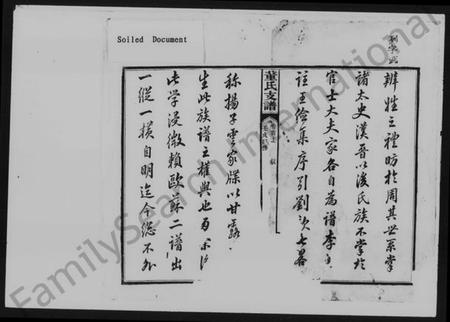 Soiled Document
辨姓之禮昉於周其世系掌
諸太史漢晉以後民族不掌於
官士大夫家各自為譜李善
註王儉集序引劉歆七畧
董氏支譜
稱揚子雲家牒以甘露
生此族譜之權輿也
此學浸微賴歐蘇二譜出
一縱一横自明迄今總不外
FamilySearch International